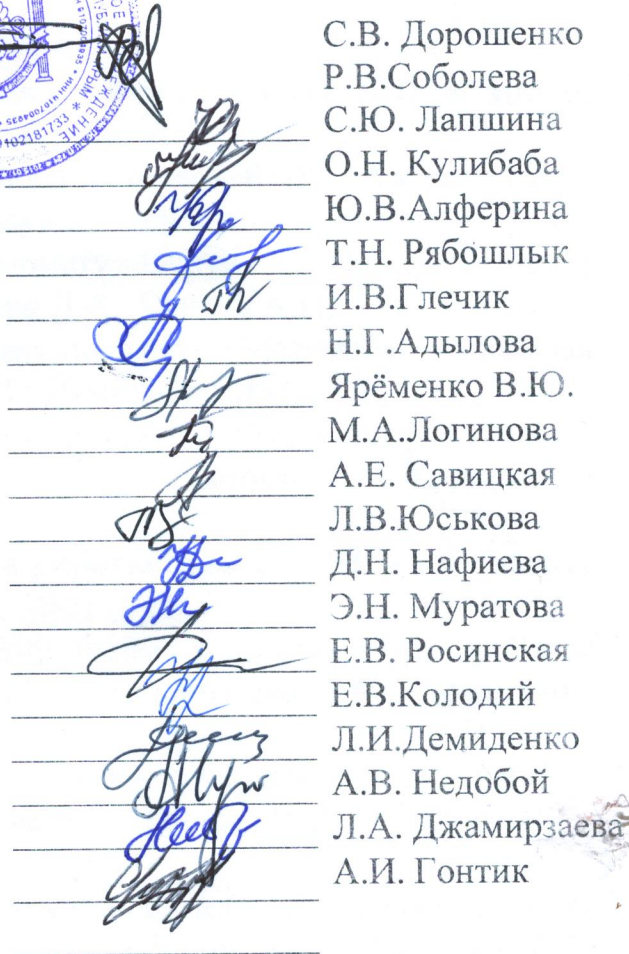 С.В. Дорошенко
Р.В.Соболева
С.Ю. Лапшина
О.Н. Кулибаба
Ю.В.Алферина
Т.Н. Рябошлык
И.В.Глечик
Н.Г.Адылова
Ярёменко В.Ю.
М.А.Логинова
А.Е. Савицкая
Л.В.Юськова
Д.Н. Нафиева
Э.Н. Муратова
Е.В. Росинская
Е.В.Колодий
Л.И.Демиденко
А.В. Недобой
Л.А. Джамирзаева
А.И. Гонтик